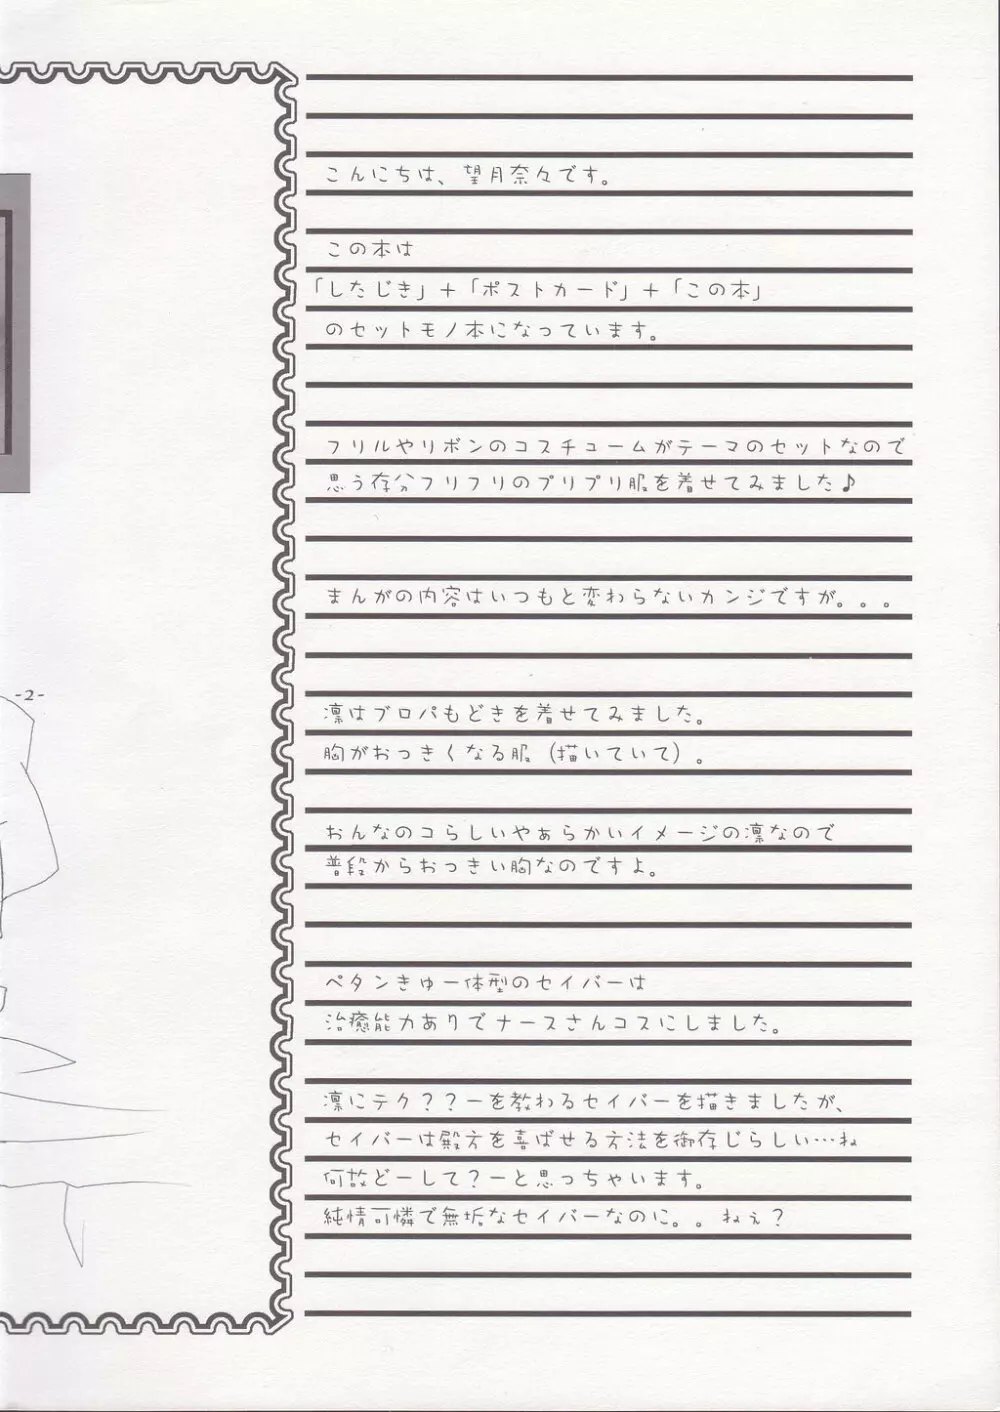 こんにちは、望月奈々です。
この本は
「したじき」＋「ポストカード」＋「この本」
のセットモノ本になっています。
フリルやリボンのコスチュームがテーマのセットなので
思う存分フリフリのプリプリ服を着せてみました♪
まんがの内容はいつもと変わらないカンジですが。。。
-2-
凛はブロパもどきを着せてみました。
胸がおっきくなる服（描いていて）。
おんなのコらしいやぁらかいイメージの凛なので
普段からおっきい胸なのですよ。
ペタンきゅー体型のセイバーは
治癒能力ありでナースさんコスにしました。
凛にテク？？ーを教わるセイバーを描きましたが、
セイバーは殿方を喜ばせる方法を御存じらしい…ね
何故どーして？ーと思っちゃいます。
純情可憐で無垢なセイバーなのに。。ねぇ？